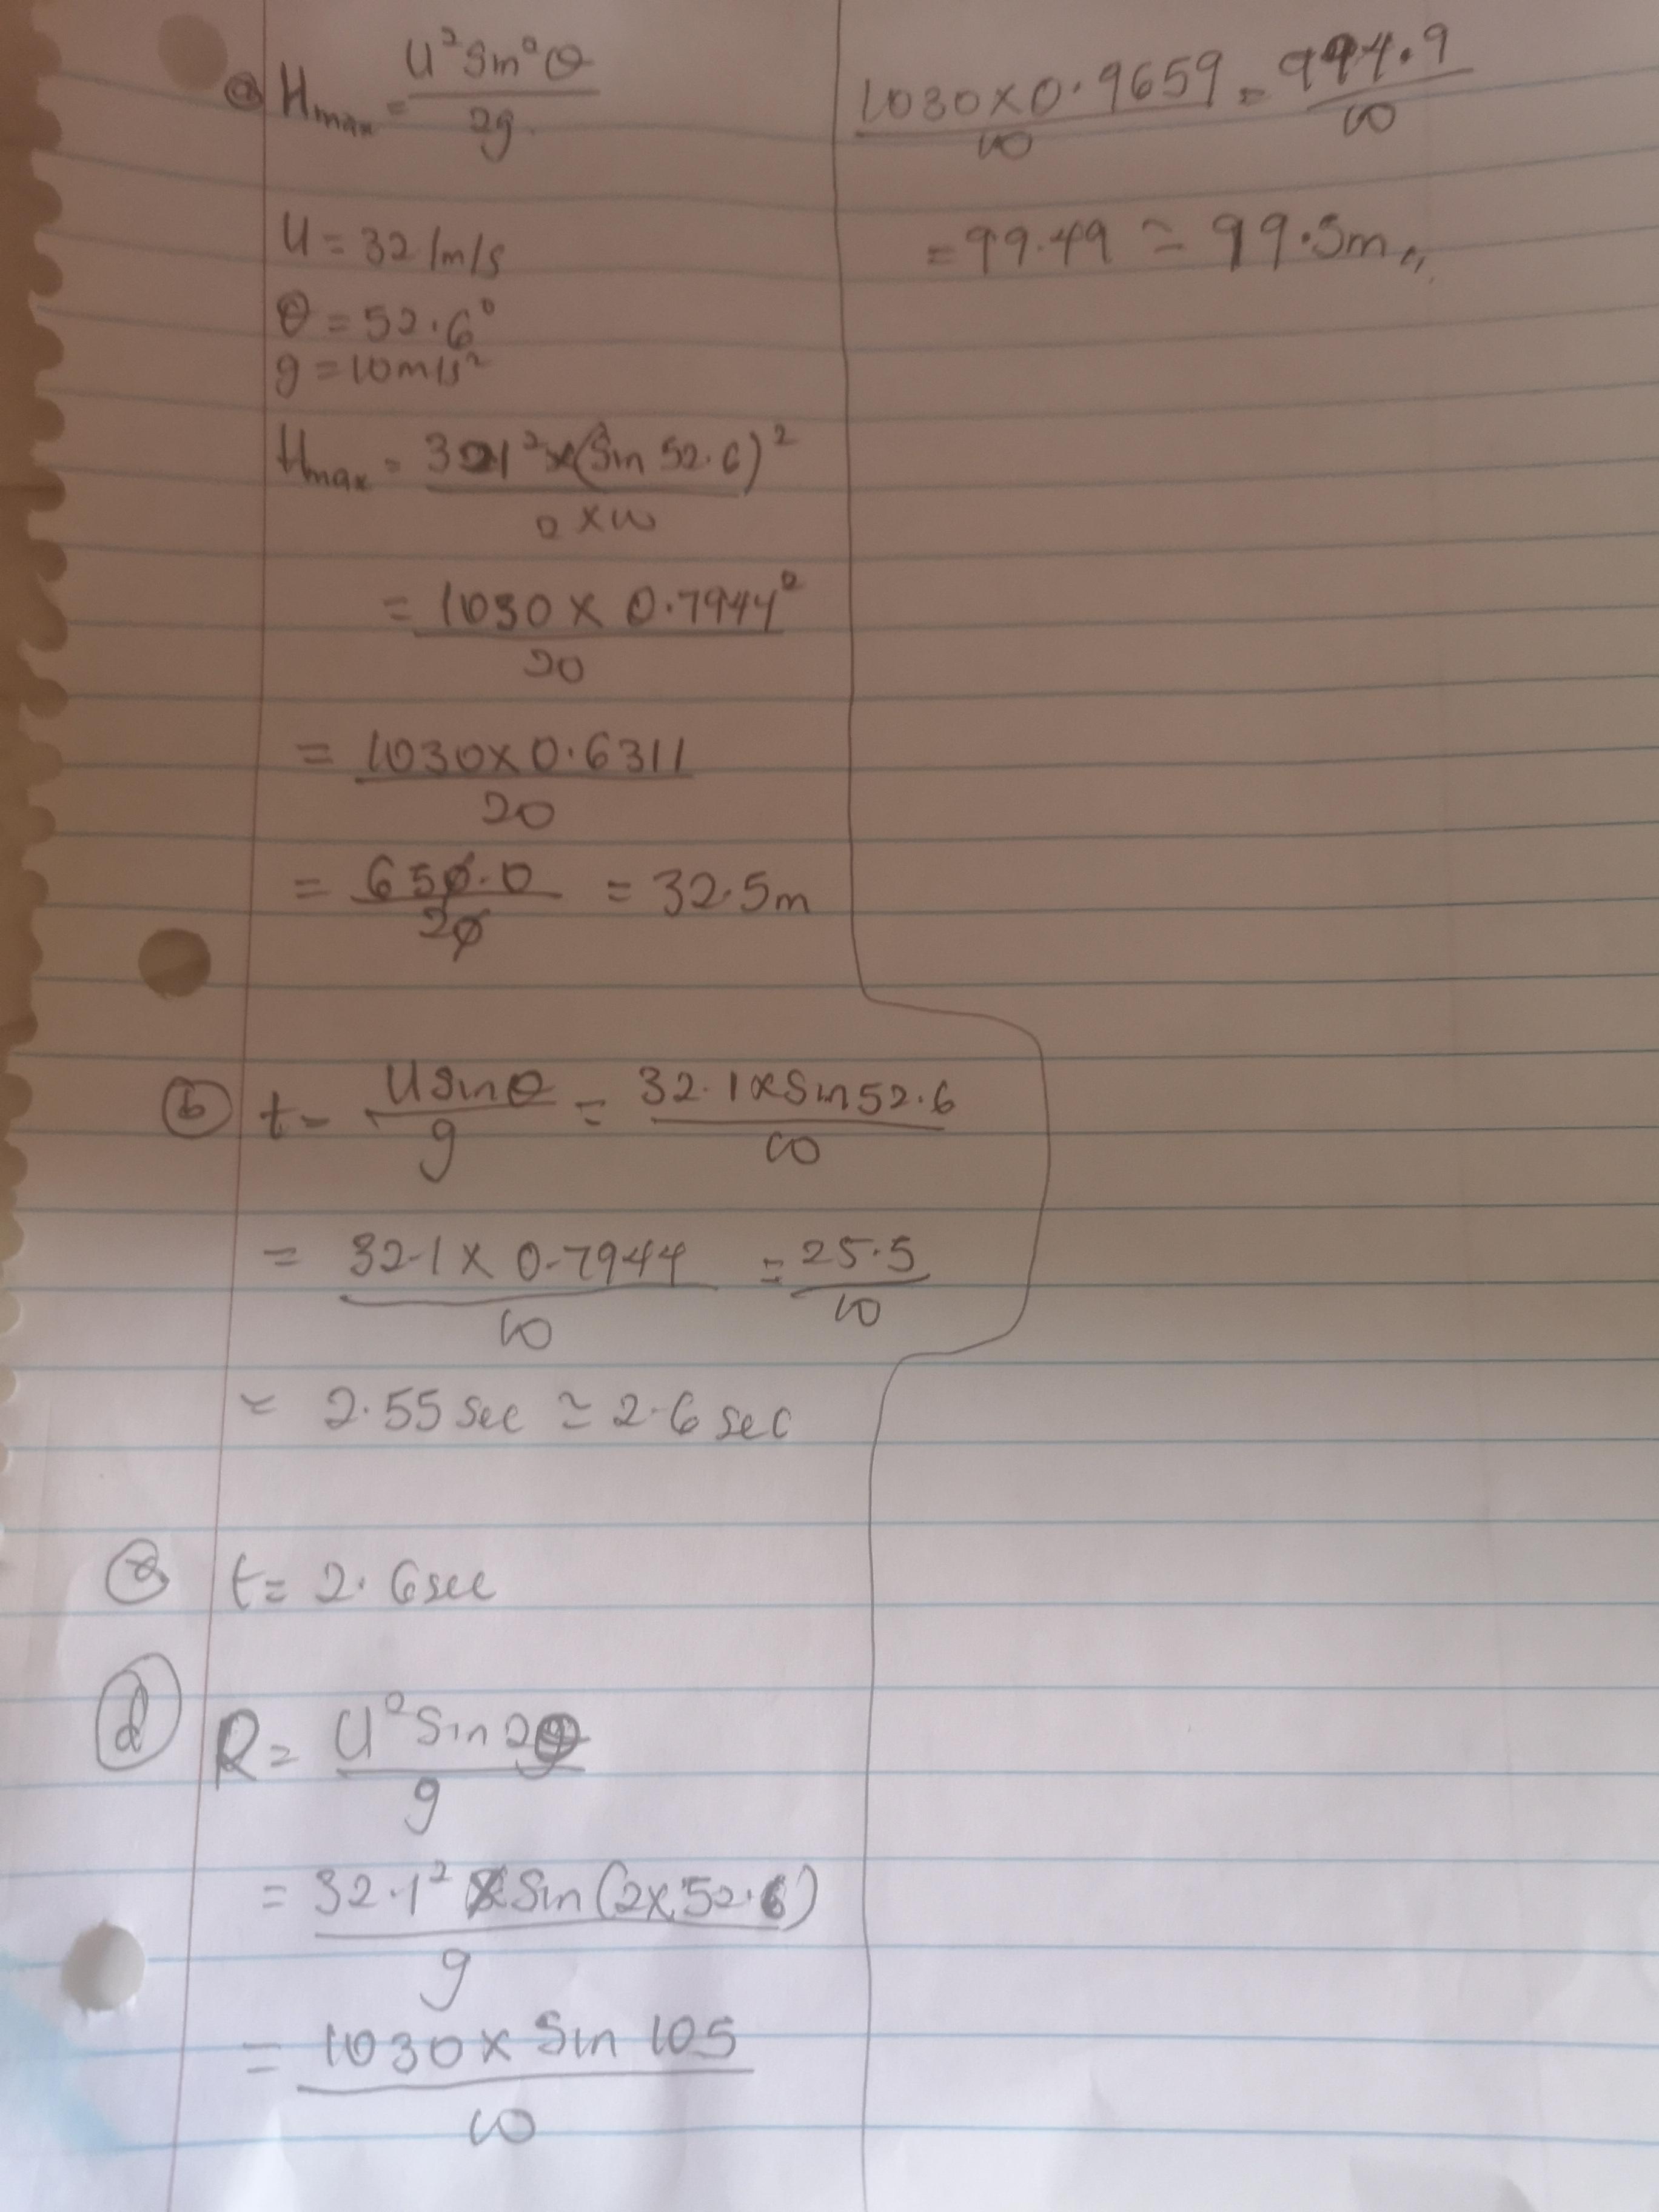 ⓐ Hmax = U² Sin²θ / 2g
U = 32.1m/s
θ = 52.6°
g = 10m/s²
Hmax = 32.1² x (Sin 52.6)² / 2 x 10
= 1030 x 0.7944² / 20
= 1030 x 0.6311 / 20
= 650.0 / 20 = 32.5m
ⓑ t = U Sin θ / g = 32.1 x Sin 52.6 / 10
= 32.1 x 0.7944 / 10 = 25.5 / 10
= 2.55 sec ≃ 2.6 sec
t = 2.6 sec
ⓓ R = U² Sin 2θ / g
= 32.1² x Sin (2 x 52.6) / g
= 1030 x Sin 105 / 10
1030 x 0.9659 / 10 = 994.9 / 10
= 99.49 ≃ 99.5m